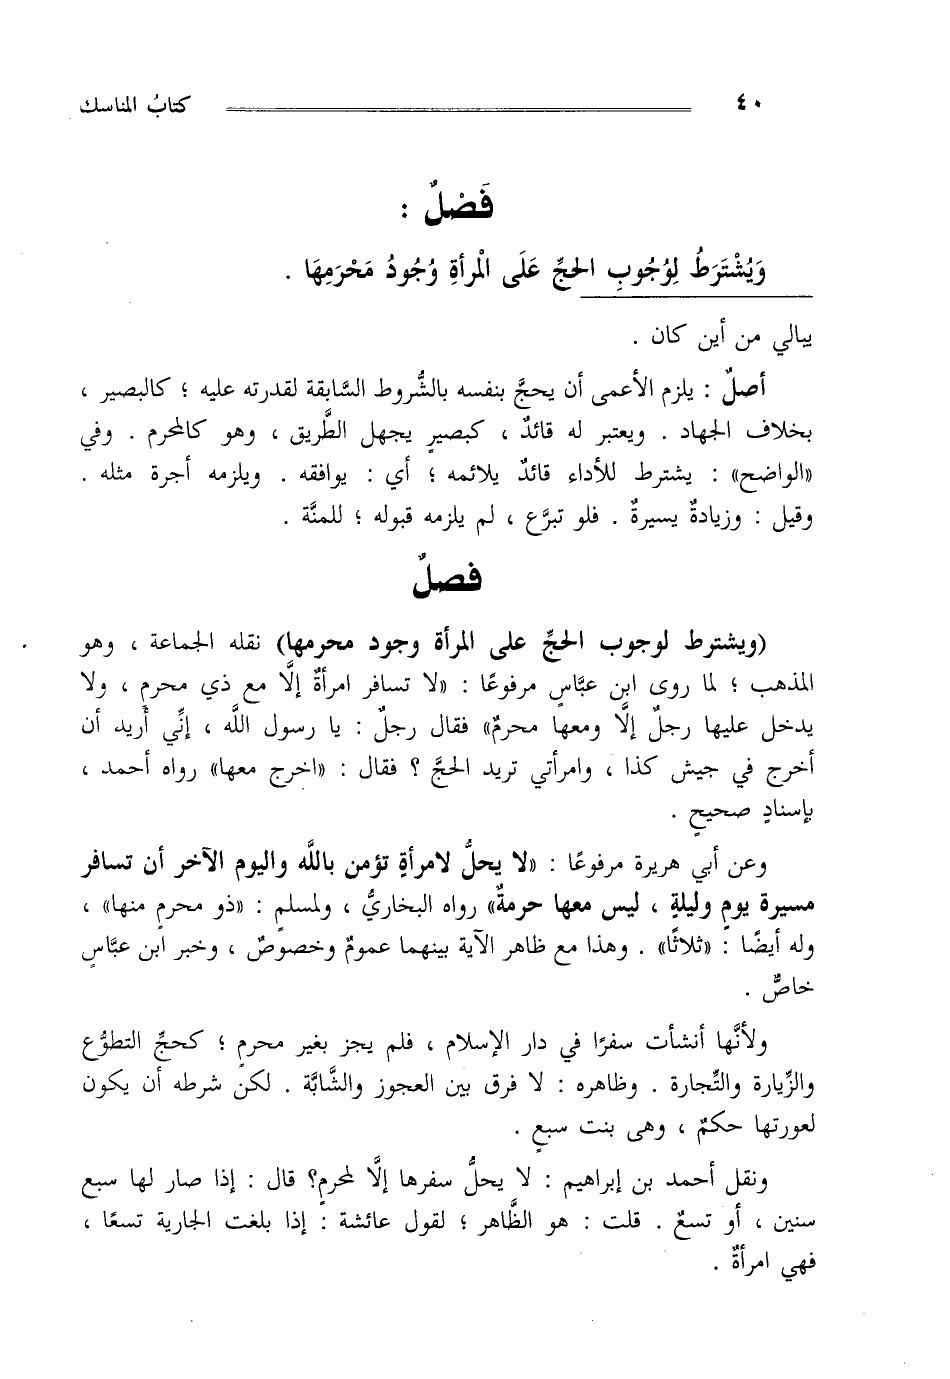 ٤٠ كتابُ المناسك
فَصْلٌ :
وَيُشْتَرَطُ لِوُجُوبِ الحجِّ عَلَى الْمرأةِ وُجُودُ مَحْرَمِهَا .
يبالي من أين كان .
أصلٌ : يلزم الأعمى أن يحجَّ بنفسه بالشُّروط السَّابقة لقدرته عليه ؛ كالبصير ،
بخلاف الجهاد . ويعتبر له قائدٌ ، كبصيرٍ يجهل الطَّريق ، وهو كالمحرم . وفي
«الواضح» : يشترط للأداء قائدٌ يلائمه ؛ أي : يوافقه . ويلزمه أجرة مثله .
وقيل : وزيادةٌ يسيرةٌ . فلو تبرَّع ، لم يلزمه قبوله ؛ للمنَّة .
فصلٌ
(ويشترط لوجوب الحجِّ على المرأة وجود محرمها) نقله الجماعة ، وهو
المذهب ؛ لما روى ابن عبَّاسٍ مرفوعًا : «لا تسافر امرأةٌ إلَّا مع ذي محرمٍ ، ولا
يدخل عليها رجلٌ إلَّا ومعها محرمٌ» فقال رجلٌ : يا رسول اللَّه ، إنِّي أريد أن
أخرج في جيش كذا ، وامرأتي تريد الحجَّ ؟ فقال : «اخرج معها» رواه أحمد ،
بإسنادٍ صحيحٍ .
وعن أبي هريرة مرفوعًا : «لا يحلُّ لامرأةٍ تؤمن باللَّه واليوم الآخر أن تسافر
مسيرة يومٍ وليلةٍ ، ليس معها حرمةٌ» رواه البخاريُّ ، ولمسلمٍ : «ذو محرمٍ منها» ،
وله أيضًا : «ثلاثًا» . وهذا مع ظاهر الآية بينهما عمومٌ وخصوصٌ ، وخبر ابن عبَّاسٍ
خاصٌّ .
ولأنَّها أنشأت سفرًا في دار الإسلام ، فلم يجز بغير محرمٍ ؛ كحجِّ التطوُّع
والزِّيارة والتِّجارة . وظاهره : لا فرق بين العجوز والشَّابَّة . لكن شرطه أن يكون
لعورتها حكمٌ ، وهى بنت سبعٍ .
ونقل أحمد بن إبراهيم : لا يحلُّ سفرها إلَّا لمحرمٍ؟ قال : إذا صار لها سبع
سنين ، أو تسعٌ . قلت : هو الظَّاهر ؛ لقول عائشة : إذا بلغت الجارية تسعًا ،
فهي امرأةٌ .